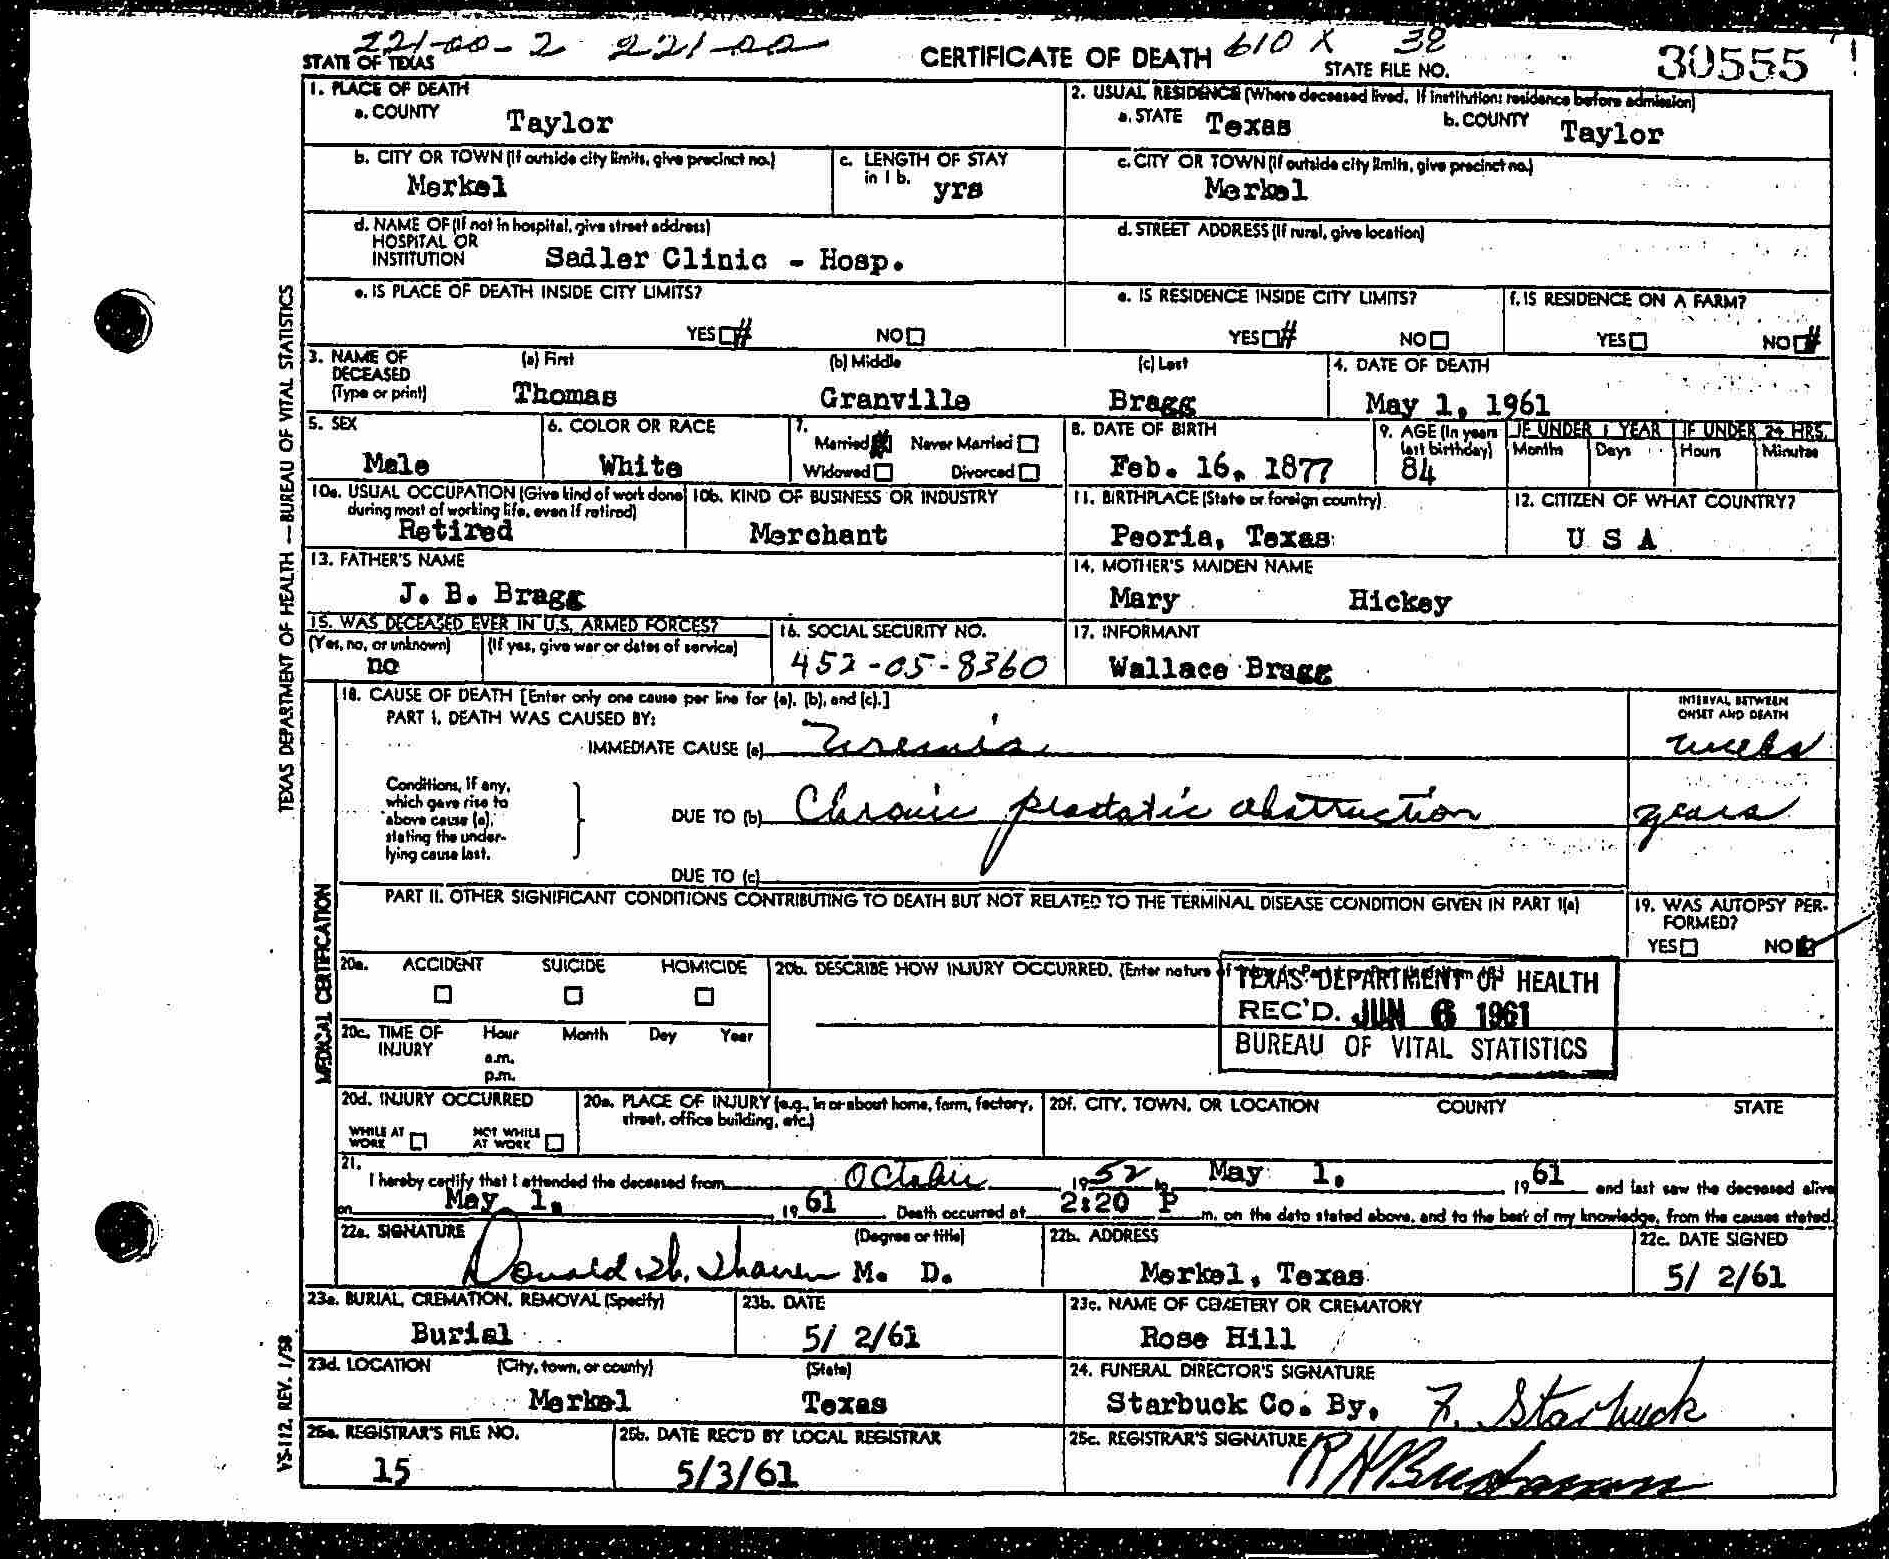 221-00-2 221-00 CERTIFICATE OF DEATH 610 X 38 30555
STATE OF TEXAS STATE FILE NO.
1. PLACE OF DEATH
a. COUNTY Taylor
2. USUAL RESIDENCE (Where deceased lived. If institution: residence before admission)
a. STATE Texas b. COUNTY Taylor
b. CITY OR TOWN (If outside city limits, give precinct no.)
Merkel
c. LENGTH OF STAY
in 1 b. yrs
c. CITY OR TOWN (If outside city limits, give precinct no.)
Merkel
d. NAME OF (If not in hospital, give street address)
HOSPITAL OR
INSTITUTION Sadler Clinic - Hosp.
d. STREET ADDRESS (If rural, give location)
e. IS PLACE OF DEATH INSIDE CITY LIMITS?
YES □# NO □
e. IS RESIDENCE INSIDE CITY LIMITS?
YES □# NO □
f. IS RESIDENCE ON A FARM?
YES □ NO □#
3. NAME OF
DECEASED
(Type or print)
(a) First (b) Middle (c) Last
Thomas Granville Bragg
4. DATE OF DEATH
May 1, 1961
5. SEX
Male
6. COLOR OR RACE
White
7.
Married Never Married □
Widowed □ Divorced □
8. DATE OF BIRTH
Feb. 16, 1877
9. AGE (In years
last birthday)
84
IF UNDER 1 YEAR IF UNDER 24 HRS.
Months Days Hours Minutes
10a. USUAL OCCUPATION (Give kind of work done
during most of working life, even if retired)
Retired
10b. KIND OF BUSINESS OR INDUSTRY
Merchant
11. BIRTHPLACE (State or foreign country)
Peoria, Texas
12. CITIZEN OF WHAT COUNTRY?
U S A
13. FATHER'S NAME
J. B. Bragg
14. MOTHER'S MAIDEN NAME
Mary Hickey
15. WAS DECEASED EVER IN U.S. ARMED FORCES?
(Yes, no, or unknown) (If yes, give war or dates of service)
no
16. SOCIAL SECURITY NO.
452-05-8360
17. INFORMANT
Wallace Bragg
18. CAUSE OF DEATH [Enter only one cause per line for (a), (b), and (c).]
PART I. DEATH WAS CAUSED BY:
IMMEDIATE CAUSE (a) Uremia
INTERVAL BETWEEN
ONSET AND DEATH
weeks
Conditions, if any,
which gave rise to
above cause (a),
stating the under-
lying cause last.
DUE TO (b) Chronic prostatic obstruction years
DUE TO (c)
PART II. OTHER SIGNIFICANT CONDITIONS CONTRIBUTING TO DEATH BUT NOT RELATED TO THE TERMINAL DISEASE CONDITION GIVEN IN PART I(a)
19. WAS AUTOPSY PER-
FORMED?
YES □ NO
20a. ACCIDENT SUICIDE HOMICIDE
20b. DESCRIBE HOW INJURY OCCURRED. (Enter nature of
TEXAS DEPARTMENT OF HEALTH
REC'D. JUN 6 1961
BUREAU OF VITAL STATISTICS
20c. TIME OF
INJURY
Hour Month Day Year
a.m.
p.m.
20d. INJURY OCCURRED
WHILE AT
WORK □
NOT WHILE
AT WORK □
20e. PLACE OF INJURY (e.g., in or about home, farm, factory,
street, office building, etc.)
20f. CITY, TOWN, OR LOCATION COUNTY STATE
21.
I hereby certify that I attended the deceased from October 1952 to May 1, 1961 and last saw the deceased alive
on May 1, 1961. Death occurred at 2:20 P m. on the date stated above, and to the best of my knowledge, from the causes stated.
22a. SIGNATURE (Degree or title)
Donald M. D.
22b. ADDRESS
Merkel, Texas
22c. DATE SIGNED
5/ 2/61
23a. BURIAL, CREMATION, REMOVAL (Specify)
Burial
23b. DATE
5/ 2/61
23c. NAME OF CEMETERY OR CREMATORY
Rose Hill
23d. LOCATION (City, town, or county) (State)
Merkel Texas
24. FUNERAL DIRECTOR'S SIGNATURE
Starbuck Co. By, F. Starbuck
25a. REGISTRAR'S FILE NO.
15
25b. DATE REC'D BY LOCAL REGISTRAR
5/3/61
25c. REGISTRAR'S SIGNATURE
R H Buchanan
TEXAS DEPARTMENT OF HEALTH — BUREAU OF VITAL STATISTICS
MEDICAL CERTIFICATION
VS-112, REV. 1/58